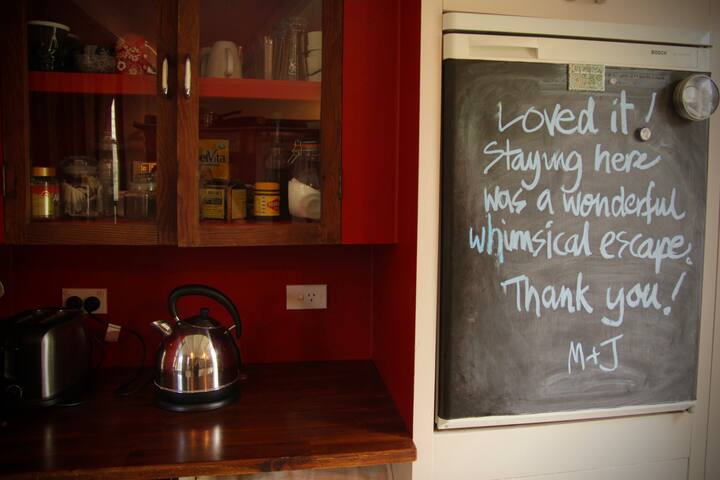 BOSCH
Loved it!
Staying here
was a wonderful
whimsical escape.
Thank you!
M+J